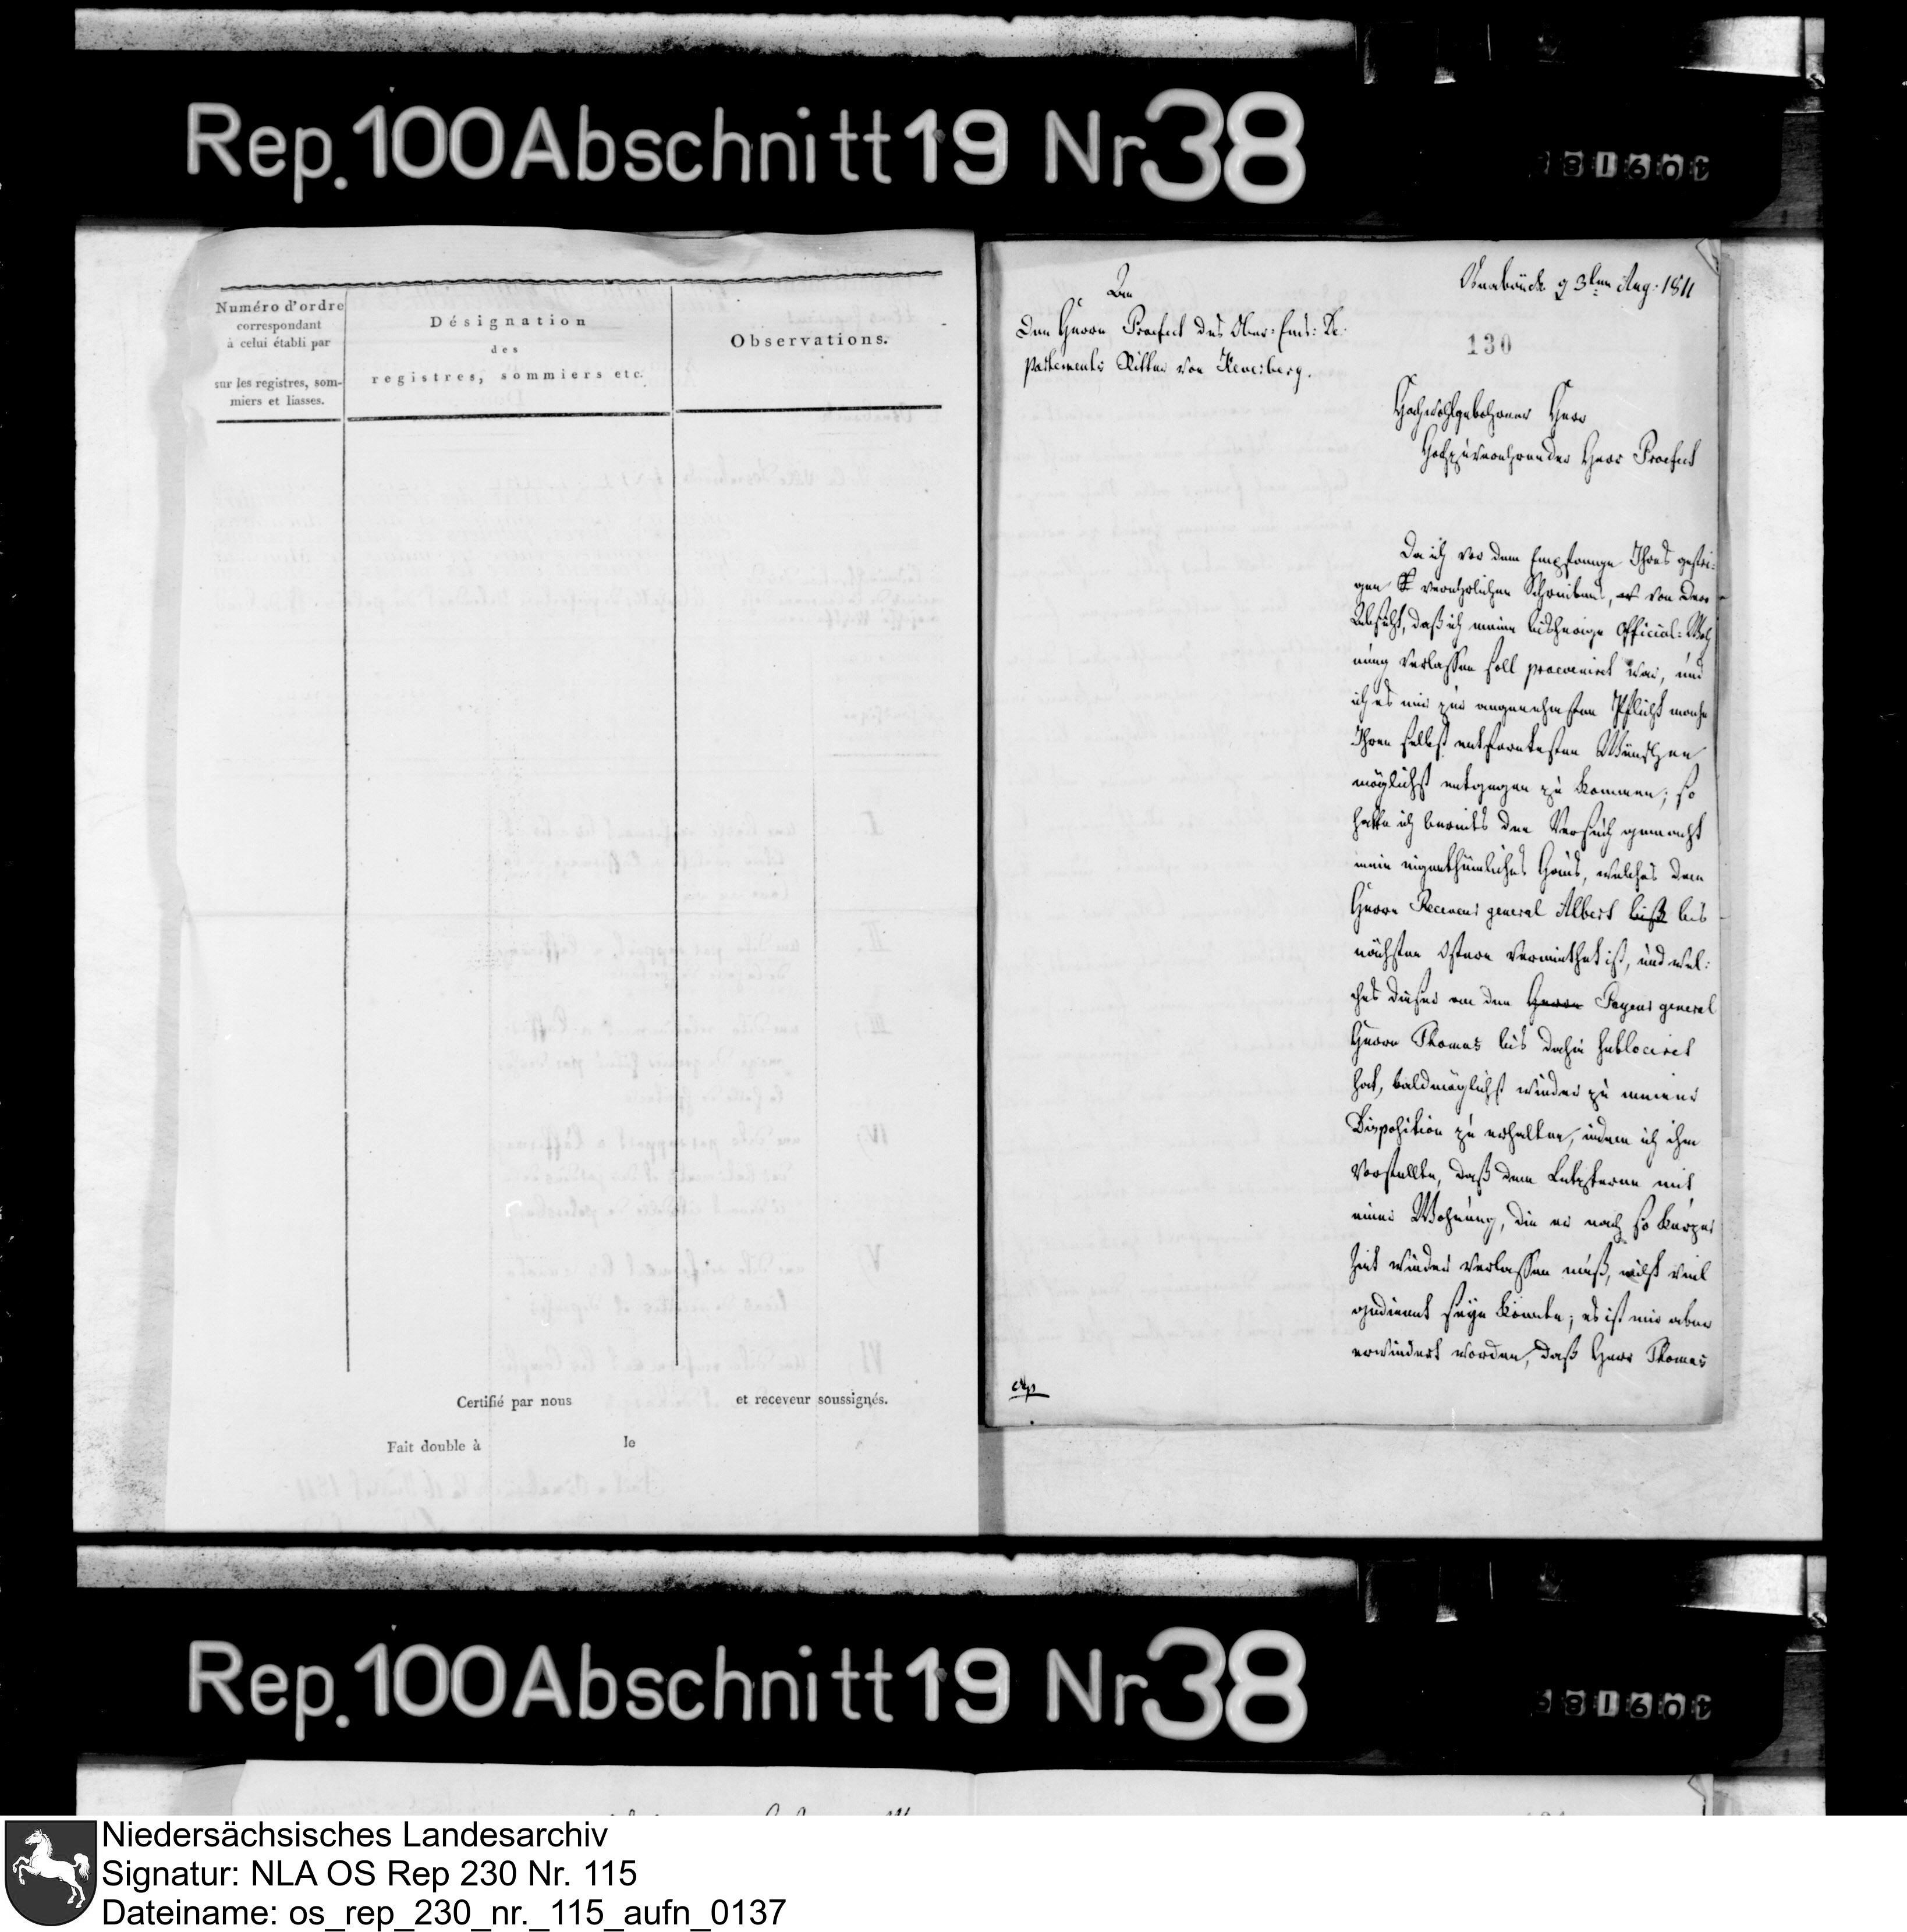 Rep. 100 Abschnitt 19 Nr 38
Numéro d'ordre
correspondant
à celui établi par
sur les registres, som-
miers et liasses.
Désignation
des
registres, sommiers etc.
Observations.
Certifié par nous et receveur soussignés.
Fait double à le
Osnabrück 3ten Aug. 1811
130
Den Herrn Praefect des Ober-Ems-De-
partements Ritter von Keverberg.
Hochwohlgebohrner Herr
Hochzuverehrender Herr Praefect
Da ich vor dem Empfange Ihres gestri-
gen verehrlichen Schreibens, von der
Absicht, daß ich meine bisherige Official-Woh
nung verlassen soll praevenirt war, und
ich es mir zur angenehmsten Pflicht mache
Ihren selbst entferntesten Wünschen
möglichst entgegen zu kommen; so
hatte ich bereits den Versuch gemacht
mein eigenthümliches Haus, welches dem
Herrn Receveur general Albert biß bis
nächsten Ostern vermiethet ist, und wel-
ches dieser an den Herrn Payeur general
Herrn Thomas bis dahin sublocirt
hat, baldmöglichst wieder zu meiner
Disposition zu erhalten, indem ich ihm
vorstellte, daß dem Letzteren mit
einer Wohnung, die er nach so kurzer
Zeit wieder verlassen muß, nicht viel
gedient seyn könnte; es ist mir aber
erwiedert worden, daß Herr Thomas
Rep. 100 Abschnitt 19 Nr 38
Niedersächsisches Landesarchiv
Signatur: NLA OS Rep 230 Nr. 115
Dateiname: os_rep_230_nr._115_aufn_0137